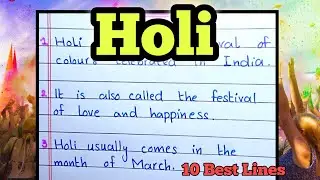 Holi
1. Holi val of
colours celebrated in India.
2. It is also called the festival
of love and happiness.
3. Holi usually comes in the
month of March.
10 Best Lines